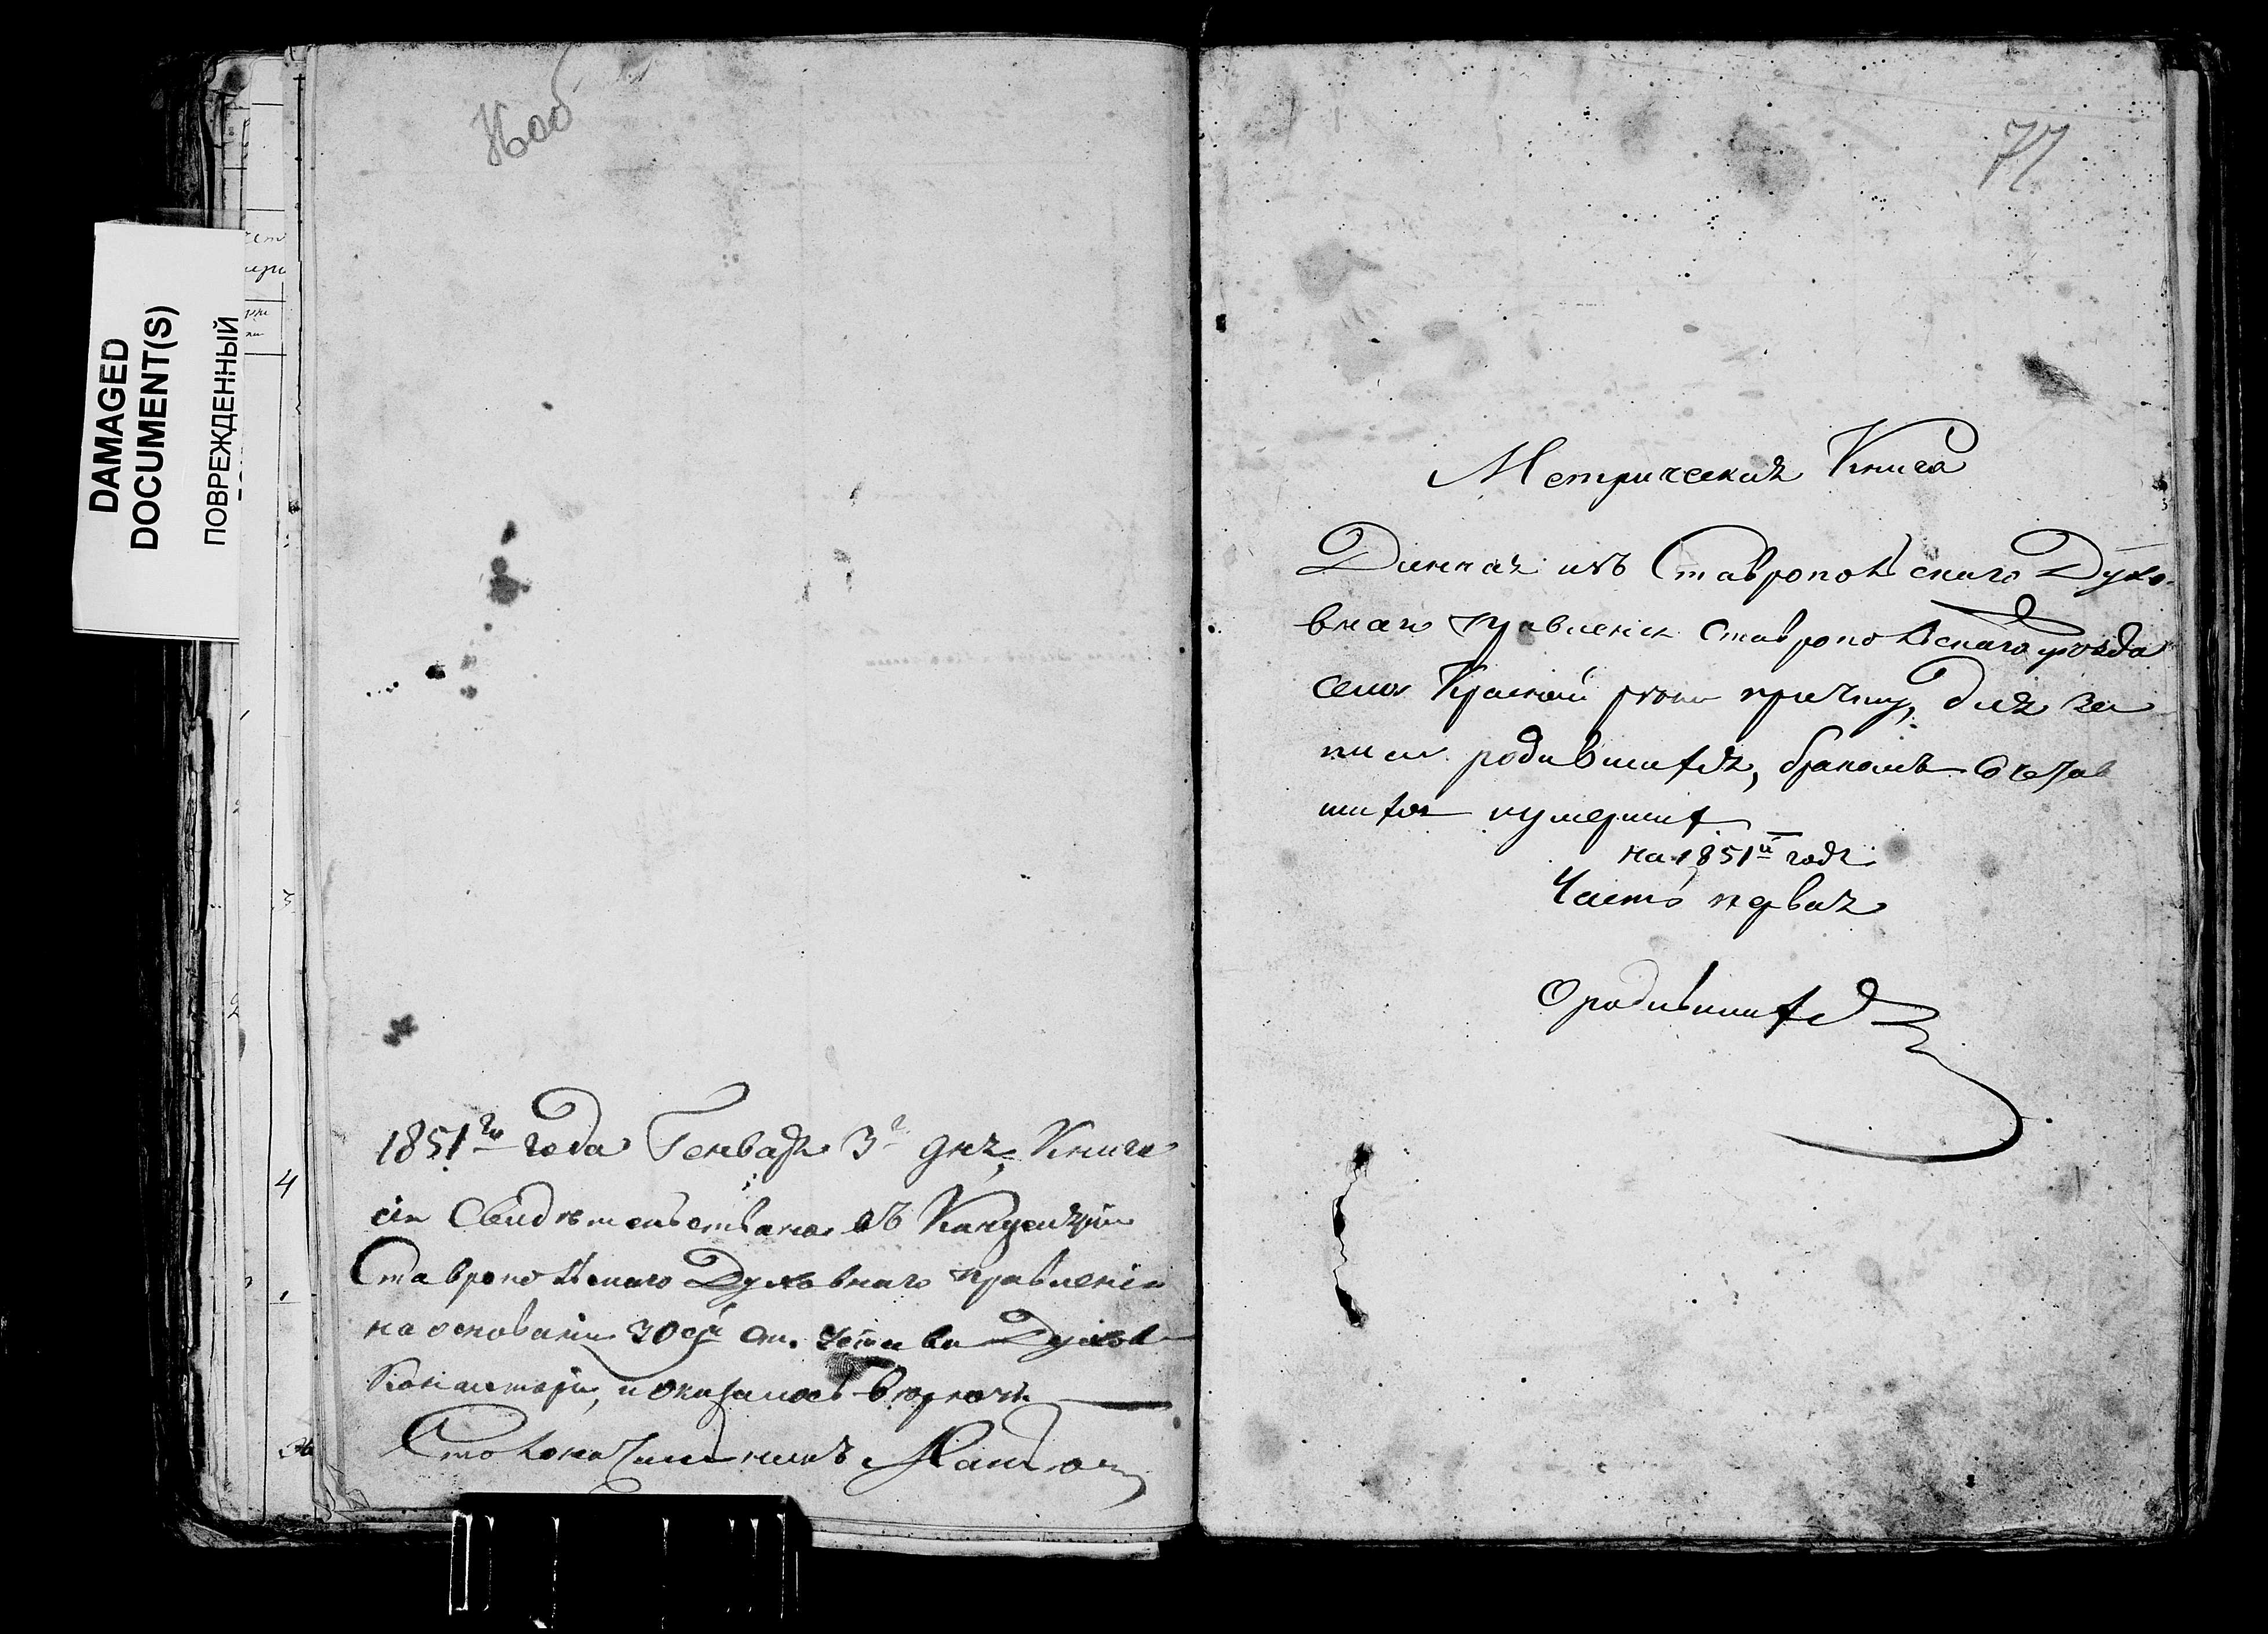 DAMAGED
DOCUMENT(S)
ПОВРЕЖДЕННЫЙ
4
1851го года Генваря 3го дня, Книга
сія Свидѣтельствана въ Канцеляріи
Ставропольскаго Духовнаго правленія
на основаніи ст. Устава Духов
Консисторіи, и оказалось въ
Столоначальникъ
77
Метрическая Книга
Данная изъ Ставропольскаго Духо-
внаго правленія Ставропольскаго уѣзда
села Красной рѣки причту, для за
писи родившихся, бракомъ сочетав
шихся и умершихъ
на 1851й годъ
Часть первая
О родившихся